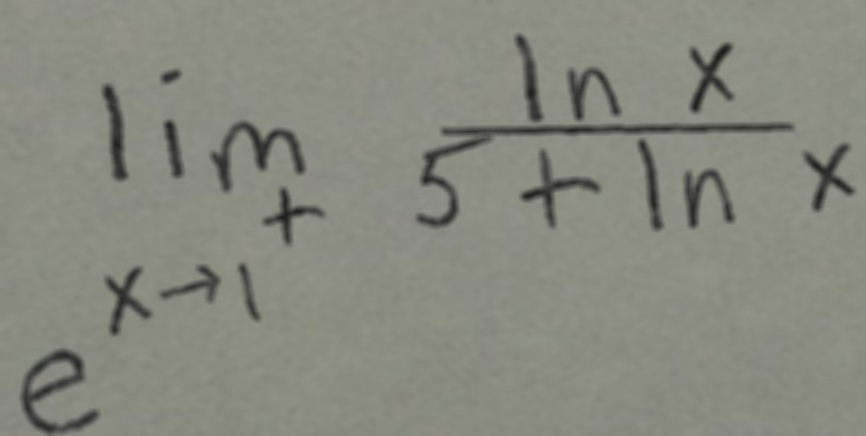 e^{\lim_{x \to 1^+} \frac{\ln x}{5 + \ln x}}